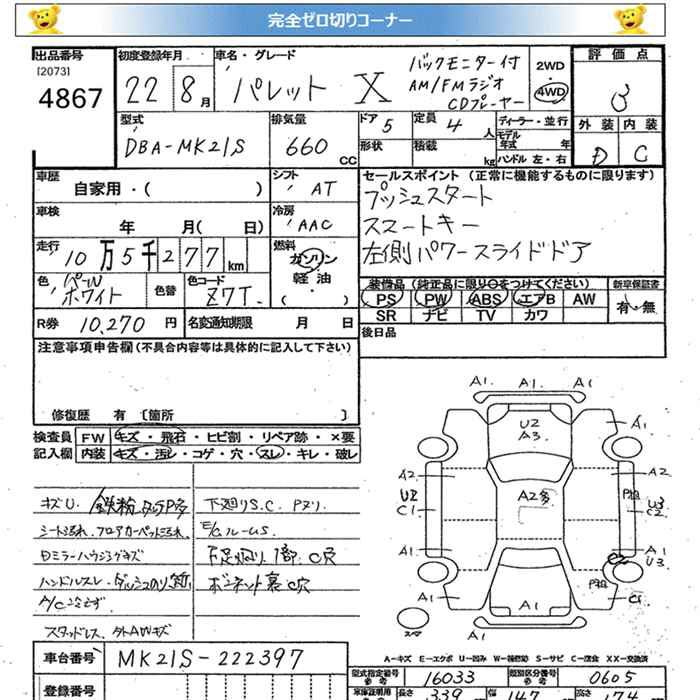 完全ゼロ切りコーナー
出品番号 初度登録年月 車名・グレード バックモニター付 2WD 評価点
[2073] AM/FMラジオ 4WD
4867 22年8月 パレット X CDプレーヤー B
型式 排気量 ドア 5 定員 4人 ディーラー・並行 外装 内装
DBA-MK21S 660cc 形状 積載 kg モデル年式 年 D C
ハンドル 左・右
車歴 シフト セールスポイント (正常に機能するものに限ります)
自家用・( ) AT プッシュスタート
車検 冷房 スマートキー
年 月( 日) AAC 左側パワースライドドア
走行 燃料
10万5千277km ガソリン
軽油
・( )
色 パール 色替 色コード 装備品 (純正品に限り○をつけてください) 新車保証書
ホワイト Z7T PS PW ABS エアB AW 有・無
SR ナビ TV カワ
R券 10,270円 名変通知期限 月 日 後日品
注意事項申告欄(不具合内容等は具体的に記入して下さい)
修復歴 有 [箇所 ]
検査員 FW キズ・飛石・ヒビ割・リペア跡・×要
記入欄 内装 キズ・汚レ・コゲ・穴・スレ・キレ・破レ
キズU. 鉄粉 下廻りS.C.
シート汚れ. フロアカーペット汚れ.
Dミラーハウジングキズ
ハンドルスレ. ボンネット裏C穴
スタッドレス. 外AWキズ
A1. A1 A1
U2
A3
A1
A2 A2
A2多
U2
C1
U3
C2
A1 A1
U3
C2
A1 A1 C1
スマ
A-キズ E-エクボ U-凹み W-補修跡 S-サビ C-腐食 XX-交換済
車台番号 MK21S-222397
型式指定番号 参考 16033 類別区分番号 参考 0605
登録番号 車庫証明用 長さ 339 幅 147 高さ 174